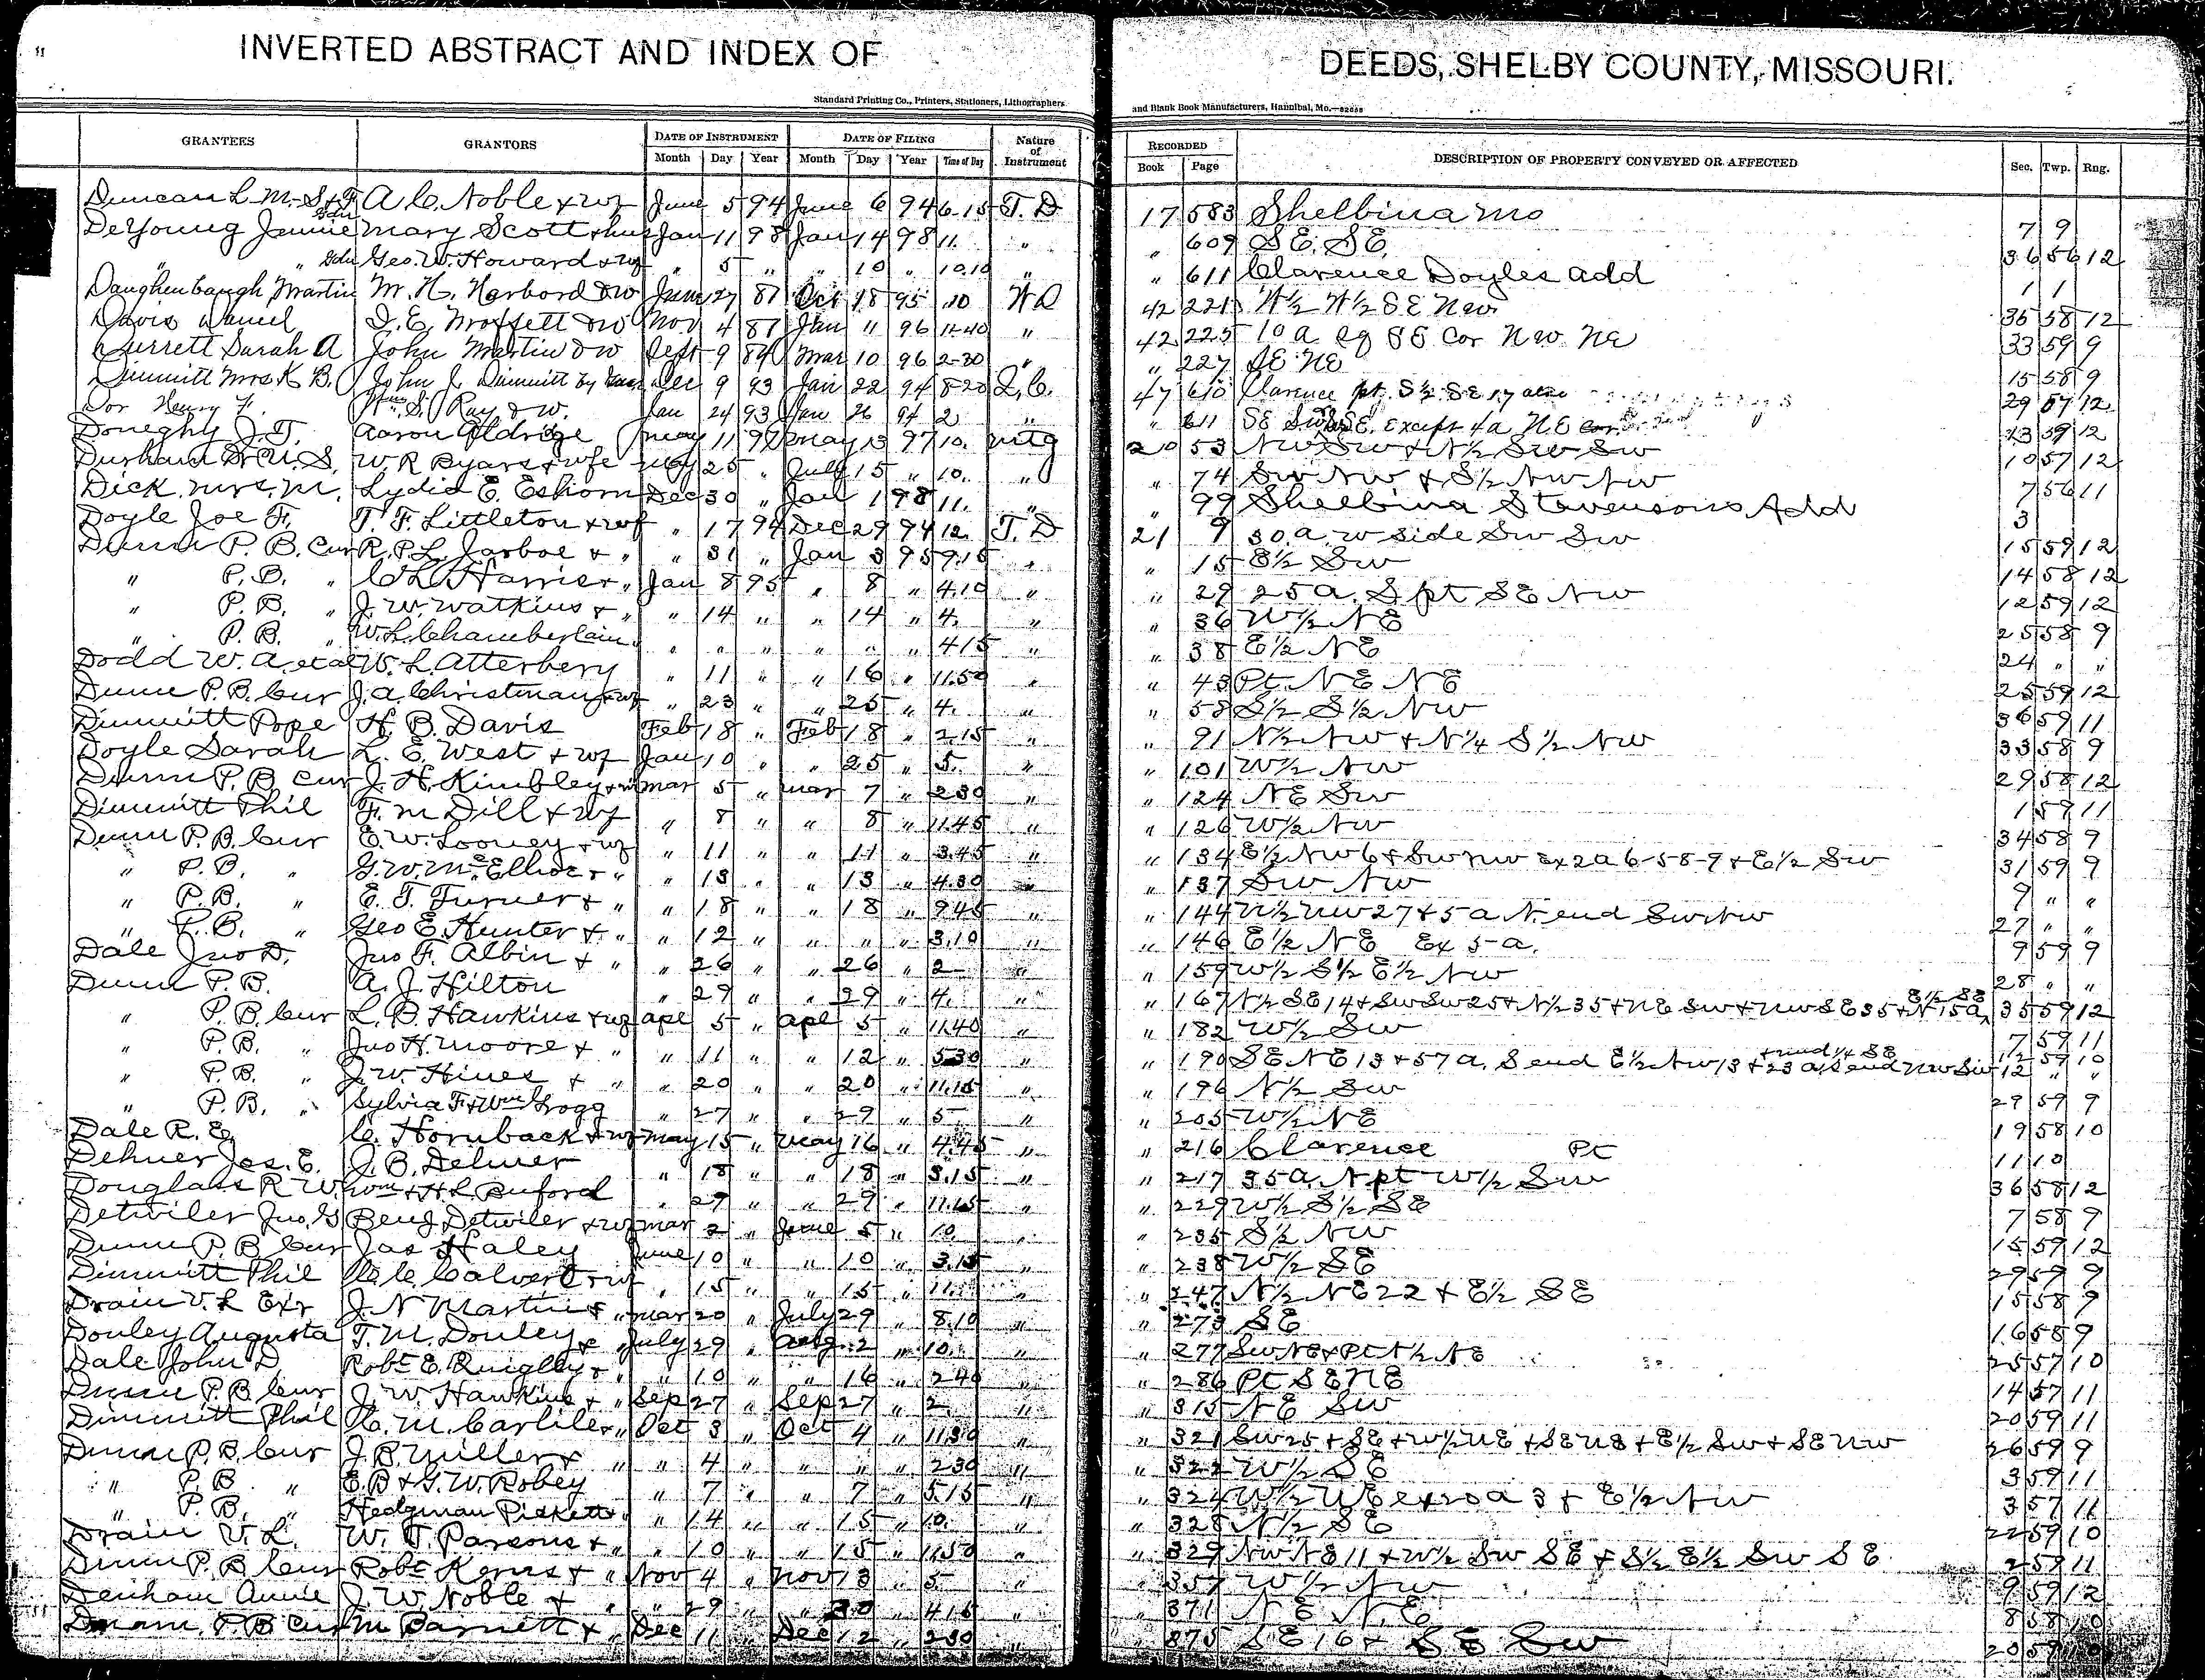 INVERTED ABSTRACT AND INDEX OF DEEDS, SHELBY COUNTY, MISSOURI.
Standard Printing Co., Printers, Stationers, Lithographers and Blank Book Manufacturers, Hannibal, Mo.
GRANTEES GRANTORS DATE OF INSTRUMENT DATE OF FILING Nature of Instrument RECORDED DESCRIPTION OF PROPERTY CONVEYED OR AFFECTED Sec. Twp. Rng.
Month Day Year Month Day Year Time of Day Book Page
Duncan L. M. S & F A. C. Noble & wf June 5 94 June 6 94 6.15 T. D 17 583 Shelbina Mo 7 9
DeYoung Jennie Gdn Mary Scott & hus Jan 11 98 Jan 14 98 11. " " 609 S E. S E. 36 56 12
" " Gdn Geo. W. Howard & wf " 5 " " 10 " 10.10 " " 611 Clarence Doyles add 1 1
Daughenbaugh Martin M. H. Harbord & w June 27 87 Oct 18 95 10 W D 42 221 W½ W½ S E N W 35 58 12
Davis Daniel J. E. Moffett & w Nov 4 87 Jan 11 96 11.40 " 42 225 10 a sq S E Cor N W N E 33 59 9
Durrett Sarah A John Martin & w Sept 9 84 Mar 10 96 2-30 " " 227 S E N E 15 58 9
Dimmitt Mrs K B. John J. Dimmitt by Dec 9 93 Jan 22 94 8-20 Q. C. 47 610 Clarence pt. S½ S E 17 also 29 57 12
Dor Henry F. Wm S. Ray & w. Jan 24 93 Jan 26 94 2 " 611 S E S W S E. Except 4a N. E cor 23 59 12
Doneghy J. T. Aaron Aldridge May 11 97 May 13 97 10. Mtg 20 53 N W S W & N½ S W S W 10 57 12
Durham Dr. U. S. W. R Byars & wfe May 25 " July 15 " 10. " " 74 S W N W & S½ N W N W 7 56 11
Dick Mrs. M. Lydia E. Eshorn Dec 30 " Jan 1 98 11. " " 99 Shelbina Stevensons Add 3
Doyle Joe F. T. F. Littleton & wf " 17 94 Dec 29 94 12. T. D 21 9 30. a. w side S W S W 15 59 12
Dunn P. B. Cur R. P. L. Jarboe & " " 31 " Jan 3 95 9.15 " " 15 E½ S W 14 58 12
" P. B. " C. L. Harris & " Jan 8 95 " 8 " 4.10 " " 29 25 a. S pt S E N W 12 59 12
" P. B. " J. W. Watkins & " " 14 " " 14 " 4. " " 36 W½ N E 25 58 9
" P. B. " W. L. Chamberlain " " " " " " 4.15 " " 38 E½ N E 24 " "
Dodd W. A. et al W. L. Atterbery " 11 " " 16 " 11.50 " " 43 Pt. N E N E 25 59 12
Dunn P. B. Cur J. A. Christman & wf " 23 " " 25 " 4. " " 58 S½ S½ N W 36 59 11
Dimmitt Pope H. B. Davis Feb 18 " Feb 18 " 2.15 " " 91 N½ N W & N¼ S½ N W 33 58 9
Doyle Sarah L. E. West & wf Jan 10 " " 25 " 5. " " 101 W½ N W 29 58 12
Dunn P. B Cur J. H. Kimbley & w Mar 5 " Mar 7 " 2.30 " " 124 N E S W 1 59 11
Dimmitt Phil F. M Dill & wf " 8 " " 8 " 11.45 " " 126 W½ N W 34 58 9
Dunn P. B. Cur E. W. Looney & wf " 11 " " 11 " 3.45 " " 134 E½ N W 6 & S W N W Ex 2 a 6-58-9 & E½ S W 31 59 9
" P. B. " G. W. McElhoe & " " 13 " " 13 " 4.30 " " 137 S W N W 9 " "
" P. B. " E. T. Turner & " " 18 " " 18 " 9.45 " " 144 N½ N W 27 & 5 a N. end S W N W 27 " "
" P. B. " Geo E. Hunter & " " 12 " " " " 3.10 " " 146 E½ N E Ex 5-a. 9 59 9
Dale Jno D. Jno F. Albin & " " 26 " " 26 " 2 " " 159 W½ S½ E½ N W 28 " "
Dunn P. B. A. J. Hilton " 29 " " 29 " 4. " " 167 N½ S E 14 & S W S W 25 & N½ 35 & N E S W & N W S E 35 & N 15 a E½ S E 35 59 12
" P. B. Cur L. B. Hawkins & wf Apl 5 " Apl 5 " 11.40 " " 182 W½ S W 7 59 11
" P. B. " Jno H. Moore & " " 11 " " 12 " 5.30 " " 190 S E N E 13 & 57 a. S end E½ N W 13 & 23 a S end N W S W 12 59 10
" P. B. " J. W. Hines & " " 20 " " 20 " 11.15 " " 196 N½ S W 12 " "
" P. B. " Sylvia F. & Wm Grogg " 27 " " 29 " 5 " " 205 W½ N E 29 59 9
Dale R. E. C. Hornback & wf May 15 " May 16 " 4.45 " " 216 Clarence Pt 19 58 10
Dehner Jos. E. J. B. Dehner " 18 " " 18 " 3.15 " " 217 35 a. N pt W½ S W 11 10
Douglass R W. Wm & H L Buford " 29 " " 29 " 11.15 " " 229 W½ S½ S E 36 58 12
Detwiler Jno. G Benj Detwiler & wf Mar 2 " June 5 " 10. " " 235 S½ N W 7 58 9
Dunn P. B Cur Jas Haley June 10 " " 10 " 3.15 " " 238 W½ S E 15 59 12
Dimmitt Phil C. C. Calvert & wf " 15 " " 15 " 11. " " 247 N½ N E 22 & E½ S E 29 59 9
Drain V. L Exr J. N Martin & " Mar 20 " July 29 " 8.10 " " 273 S E 15 58 9
Douley Augusta T. M. Douley & " July 29 " Aug. 2 " 10. " " 277 S W N E & Pt N½ N E 16 58 9
Dale John D Robt E. Quigley & " " 10 " " 16 " 2.40 " " 286 Pt S E N E 25 57 10
Dunn P. B Cur J. W Hawkins & " Sep 27 " Sep 27 " 2. " " 315 N E S W 14 57 11
Dimmitt Phil C. M. Carlile & " Oct 3 " Oct 4 " 11.30 " " 321 S W 25 & S E & W½ N E & S E N E & E½ S W & S E N W 20 59 11
Dunn P. B. Cur J. B. Miller & " " 4 " " " " 2.30 " " 322 W½ S E 26 59 9
" P. B " E. B & G. W. Robey " 7 " " 7 " 5.15 " " 324 W½ N E ex 20 a 3 & E½ N W 3 59 11
" P. B. " Hedgman Pickett & " " 14 " " 15 " 10. " " 328 N½ S E 3 57 11
Drain V. L. W. T. Parsons & " " 10 " " 15 " 11.50 " " 329 N W N E 11 & W½ S W S E & S½ E½ S W S E 22 59 10
Dunn P. B Cur Robt Kerns & " Nov 4 " Nov 13 " 5. " " 357 W½ N W 2 59 11
Denham Annie J. W. Noble & " " 29 " " 30 " 4.15 " " 371 N E N. E 9 59 12
Dunn. P. B Cur M Barnett & " Dec 11 " Dec 12 " 2.30 " 375 S E 16 & S E S W 8 58 10
20 59 10